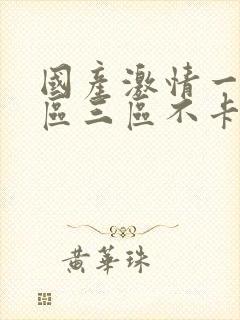 國產激情一
區三區不卡
黃華珠